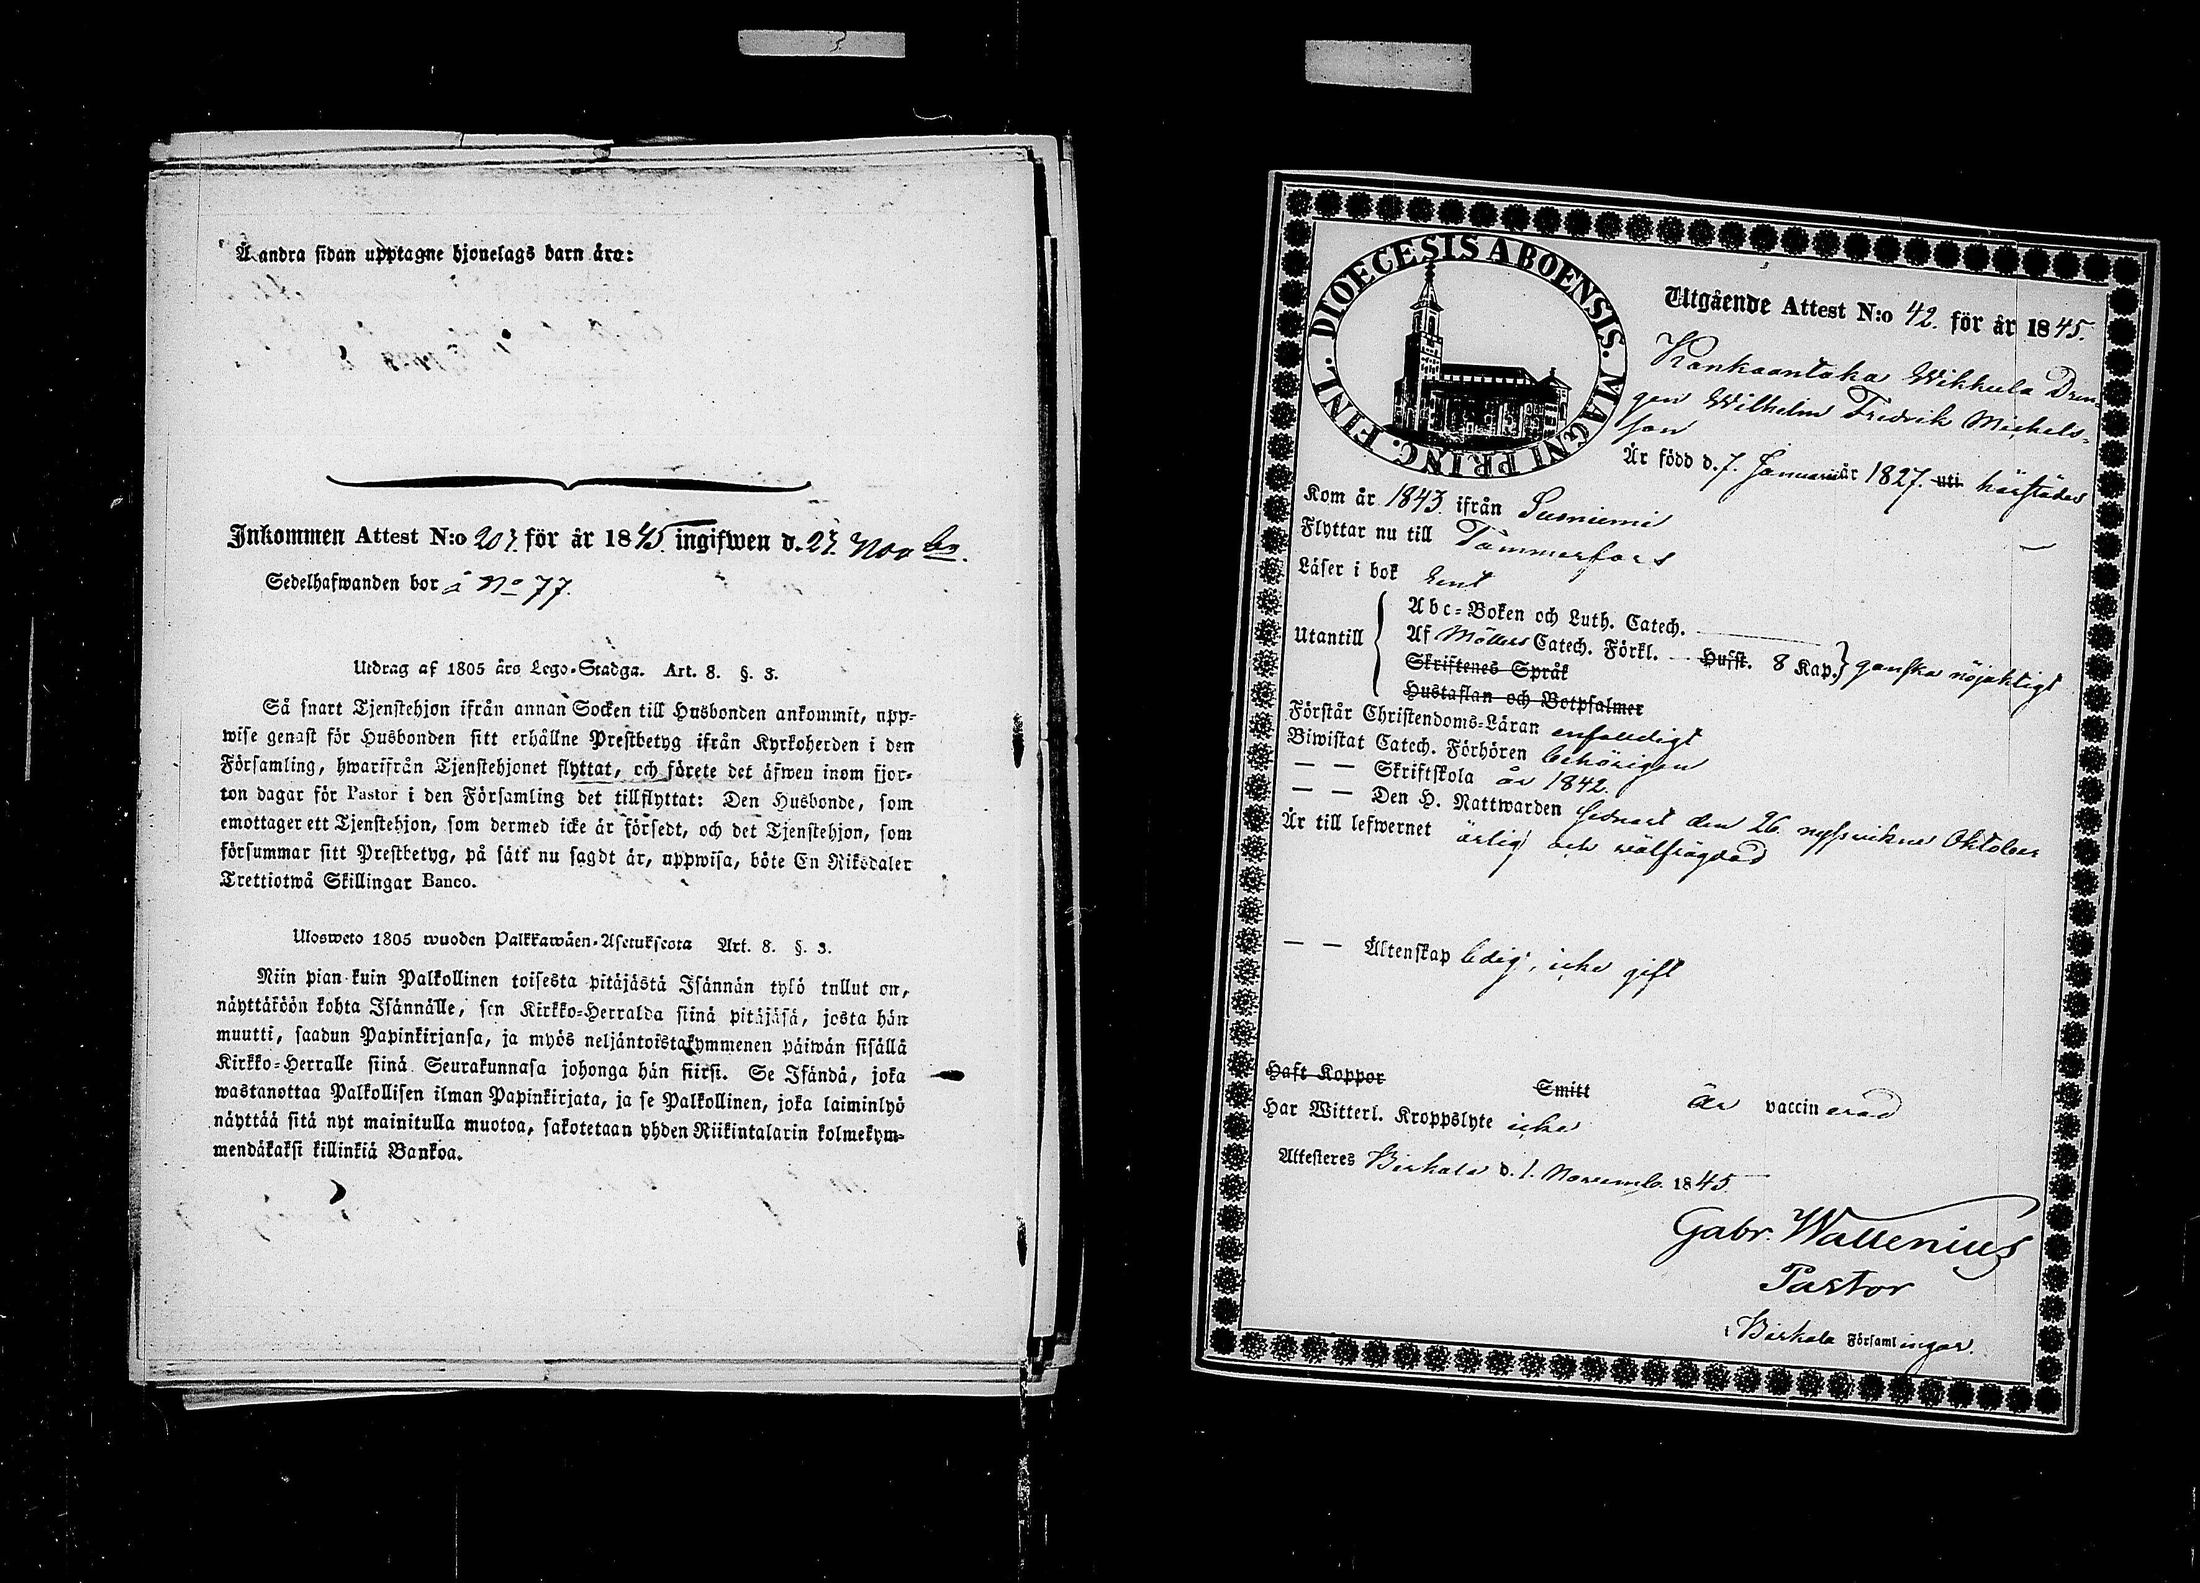 Å andra sidan upptagne hjonelags barn äro:
Inkommen Attest N:o 207. för år 1845. ingifwen d. 27. Novbr.
Sedelhafwanden bor å No 77.
Utdrag af 1805 års Lego-Stadga. Art. 8. §. 3.
Så snart Tjenstehjon ifrån annan Socken till Husbonden ankommit, upp-
wise genast för Husbonden sitt erhållne Prestbetyg ifrån Kyrkoherden i den
Församling, hwarifrån Tjenstehjonet flyttat, och förete det äfwen inom fjor-
ton dagar för Pastor i den Församling det tillflyttat: Den Husbonde, som
emottager ett Tjenstehjon, som dermed icke är försedt, och det Tjenstehjon, som
försummar sitt Prestbetyg, på sätt nu sagdt är, uppwisa, böte En Riksdaler
Trettiotwå Skillingar Banco.
Ulosweto 1805 wuoden Palkkawäen-Asetuksesta Art. 8. §. 3.
Niin pian kuin Palkollinen toisesta pitäjästä Isännän tylö tullut on,
näyttäköön kohta Isännälle, sen Kirkko-Herralda siinä pitäjäsä, josta hän
muutti, saadun Papinkirjansa, ja myös neljäntoistakymmenen päiwän sisällä
Kirkko-Herralle siinä Seurakunnasa johonga hän siirsi. Se Isändä, joka
wastanottaa Palkollisen ilman Papinkirjata, ja se Palkollinen, joka laiminlyö
näyttää sitä nyt mainitulla muotoa, sakotetaan yhden Riikintalarin kolmekym-
mendäkaksi killinkiä Bankoa.
DIOECESIS ABOENSIS. MAGNI PRINC. FINL.
Utgående Attest N:o 42. för år 1845.
Kankaantaka Wikkula Dren-
gen Wilhelm Fredrik Michels-
son
Är född d. 7. Januarii år 1827. uti härstädes
Kom år 1843. ifrån Suoniemi
Flyttar nu till Tammerfors
Läser i bok rent
Utantill
Abc-Boken och Luth. Catech.
Af Möllers Catech. Förkl. Husft. 8 Kap. ganska nöjaktigt
Skriftenes Språk
Hustaflan och Botpsalmer
Förstår Christendoms-Läran enfaldigt
Biwistat Catech. Förhören behörigen
— — Skriftskola år 1842.
— — Den H. Nattwarden sednast den 26. nyssvikne Oktober
Är till lefwernet ärlig och wälfrägdad
— — Äktenskap ledig, icke gift
Haft Koppor Smitt är vaccinerad
Har Witterl. Kroppslyte icke
Attesteres Birkala d. 1. Novemb. 1845
Gabr. Wallenius
Pastor
i Birkala Församlingar.